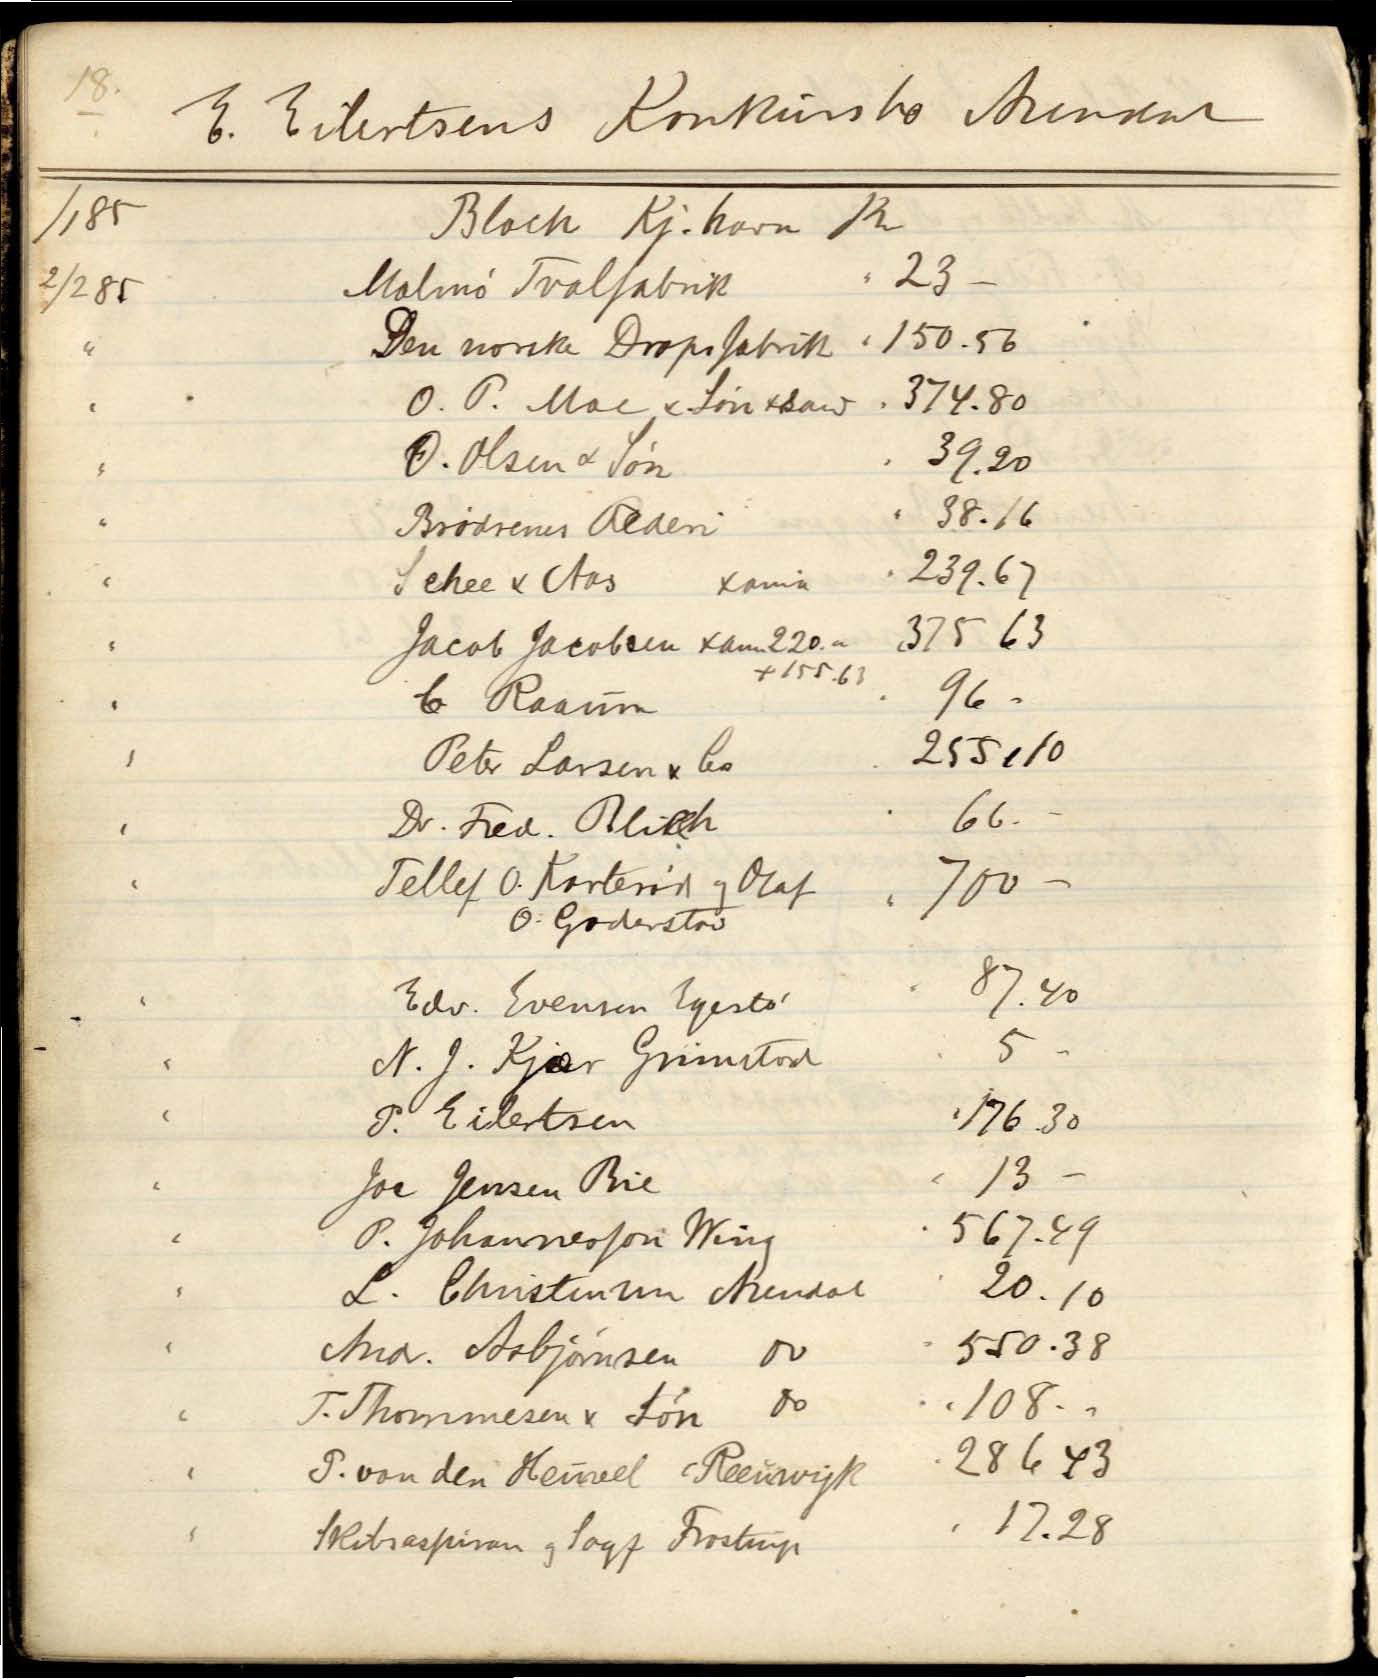 18.
E. Eilertsens Konkursbo Arendal
/185 Bloch Kj.havn Kr
2/285 Malmö Tvalfabrik " 23 –
" Den norske Dropsfabrik " 150.56
" O. P. Moe & Sön 374.80
" O. Olsen & Sön " 39.20
" Brödrenes Rederi " 38.16
" Schee & Aas " 239.67
" Jacob Jacobsen 220.- 375 63
+ 155.63
" C Raaum " 96 -
" Peter Larsen & Co " 255,10
" Dr. Fred. Blich " 66. –
" Tellef O. Korteröd g Olaf " 700 –
O. Goderstad
" Edv. Evensen Egestö " 87.40
" N. J. Kjær Grimstad " 5 -
" P. Eilertsen " 176.30
" Joe Jensen Bie " 13 –
" P. Johannesson Wing " 567.49
" L. Christensen Arendal " 20.10
" And. Asbjörnsen do " 550.38
" T. Thommesen & Sön do " 108. -
" P. van den Heuvel Reeuwijk " 286 43
" Skibsaspiran g Sagf Frostrup " 17.28